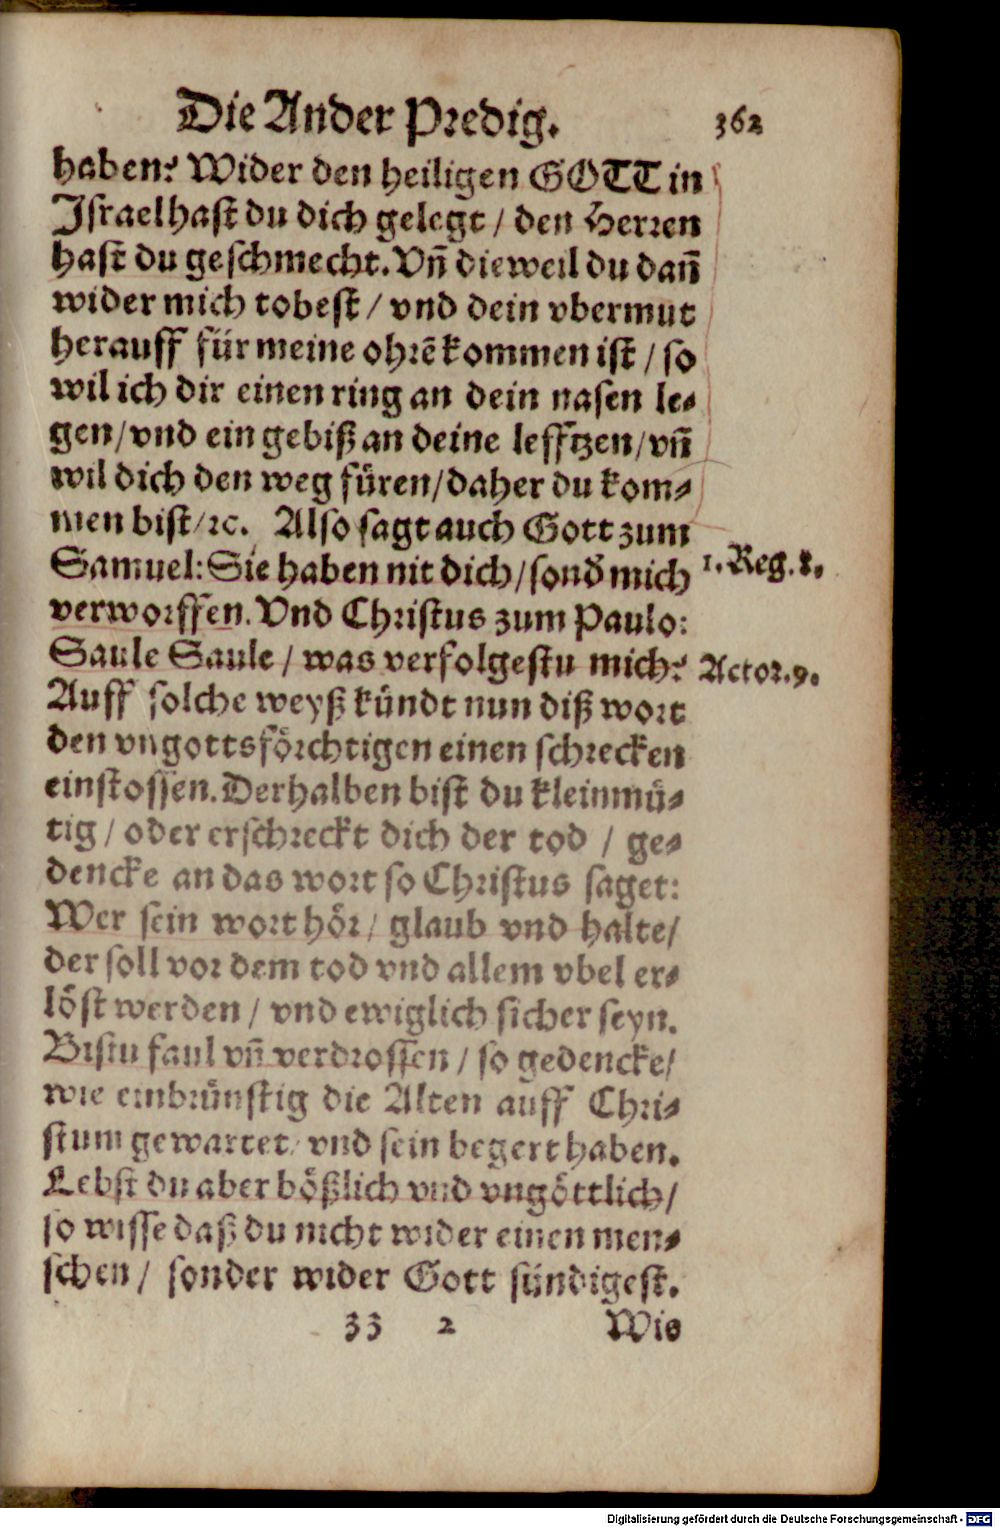 Die Ander Predig. 362
haben? Wider den heiligen GOTT in
Israel hast du dich gelegt / den Herren
hast du geschmecht. Vñ dieweil du dañ
wider mich tobest / vnd dein vbermut
herauff für meine ohrē kommen ist / so
wil ich dir einen ring an dein nasen le-
gen / vnd ein gebiß an deine lefftzen / vñ
wil dich den weg füren / daher du kom-
men bist / ꝛc. Also sagt auch Gott zum
Samuel: Sie haben nit dich / sonđ mich 1. Reg. 8.
verworffen. Vnd Christus zum Paulo:
Saule Saule / was verfolgestu mich? Actor. 9.
Auff solche weyß kündt nun diß wort
den vngottsförchtigen einen schrecken
einstossen. Derhalben bist du kleinmü-
tig / oder erschreckt dich der tod / ge-
dencke an das wort so Christus saget:
Wer sein wort hör / glaub vnd halte /
der soll vor dem tod vnd allem vbel er-
löst werden / vnd ewiglich sicher seyn.
Bistu faul vñ verdrossen / so gedencke /
wie einbrünstig die Alten auff Chri-
stum gewartet / vnd sein begert haben.
Lebst du aber bößlich vnd vngöttlich /
so wisse daß du nicht wider einen men-
schen / sonder wider Gott sündigest.
Zz 2 Wie
Digitalisierung gefördert durch die Deutsche Forschungsgemeinschaft - DFG